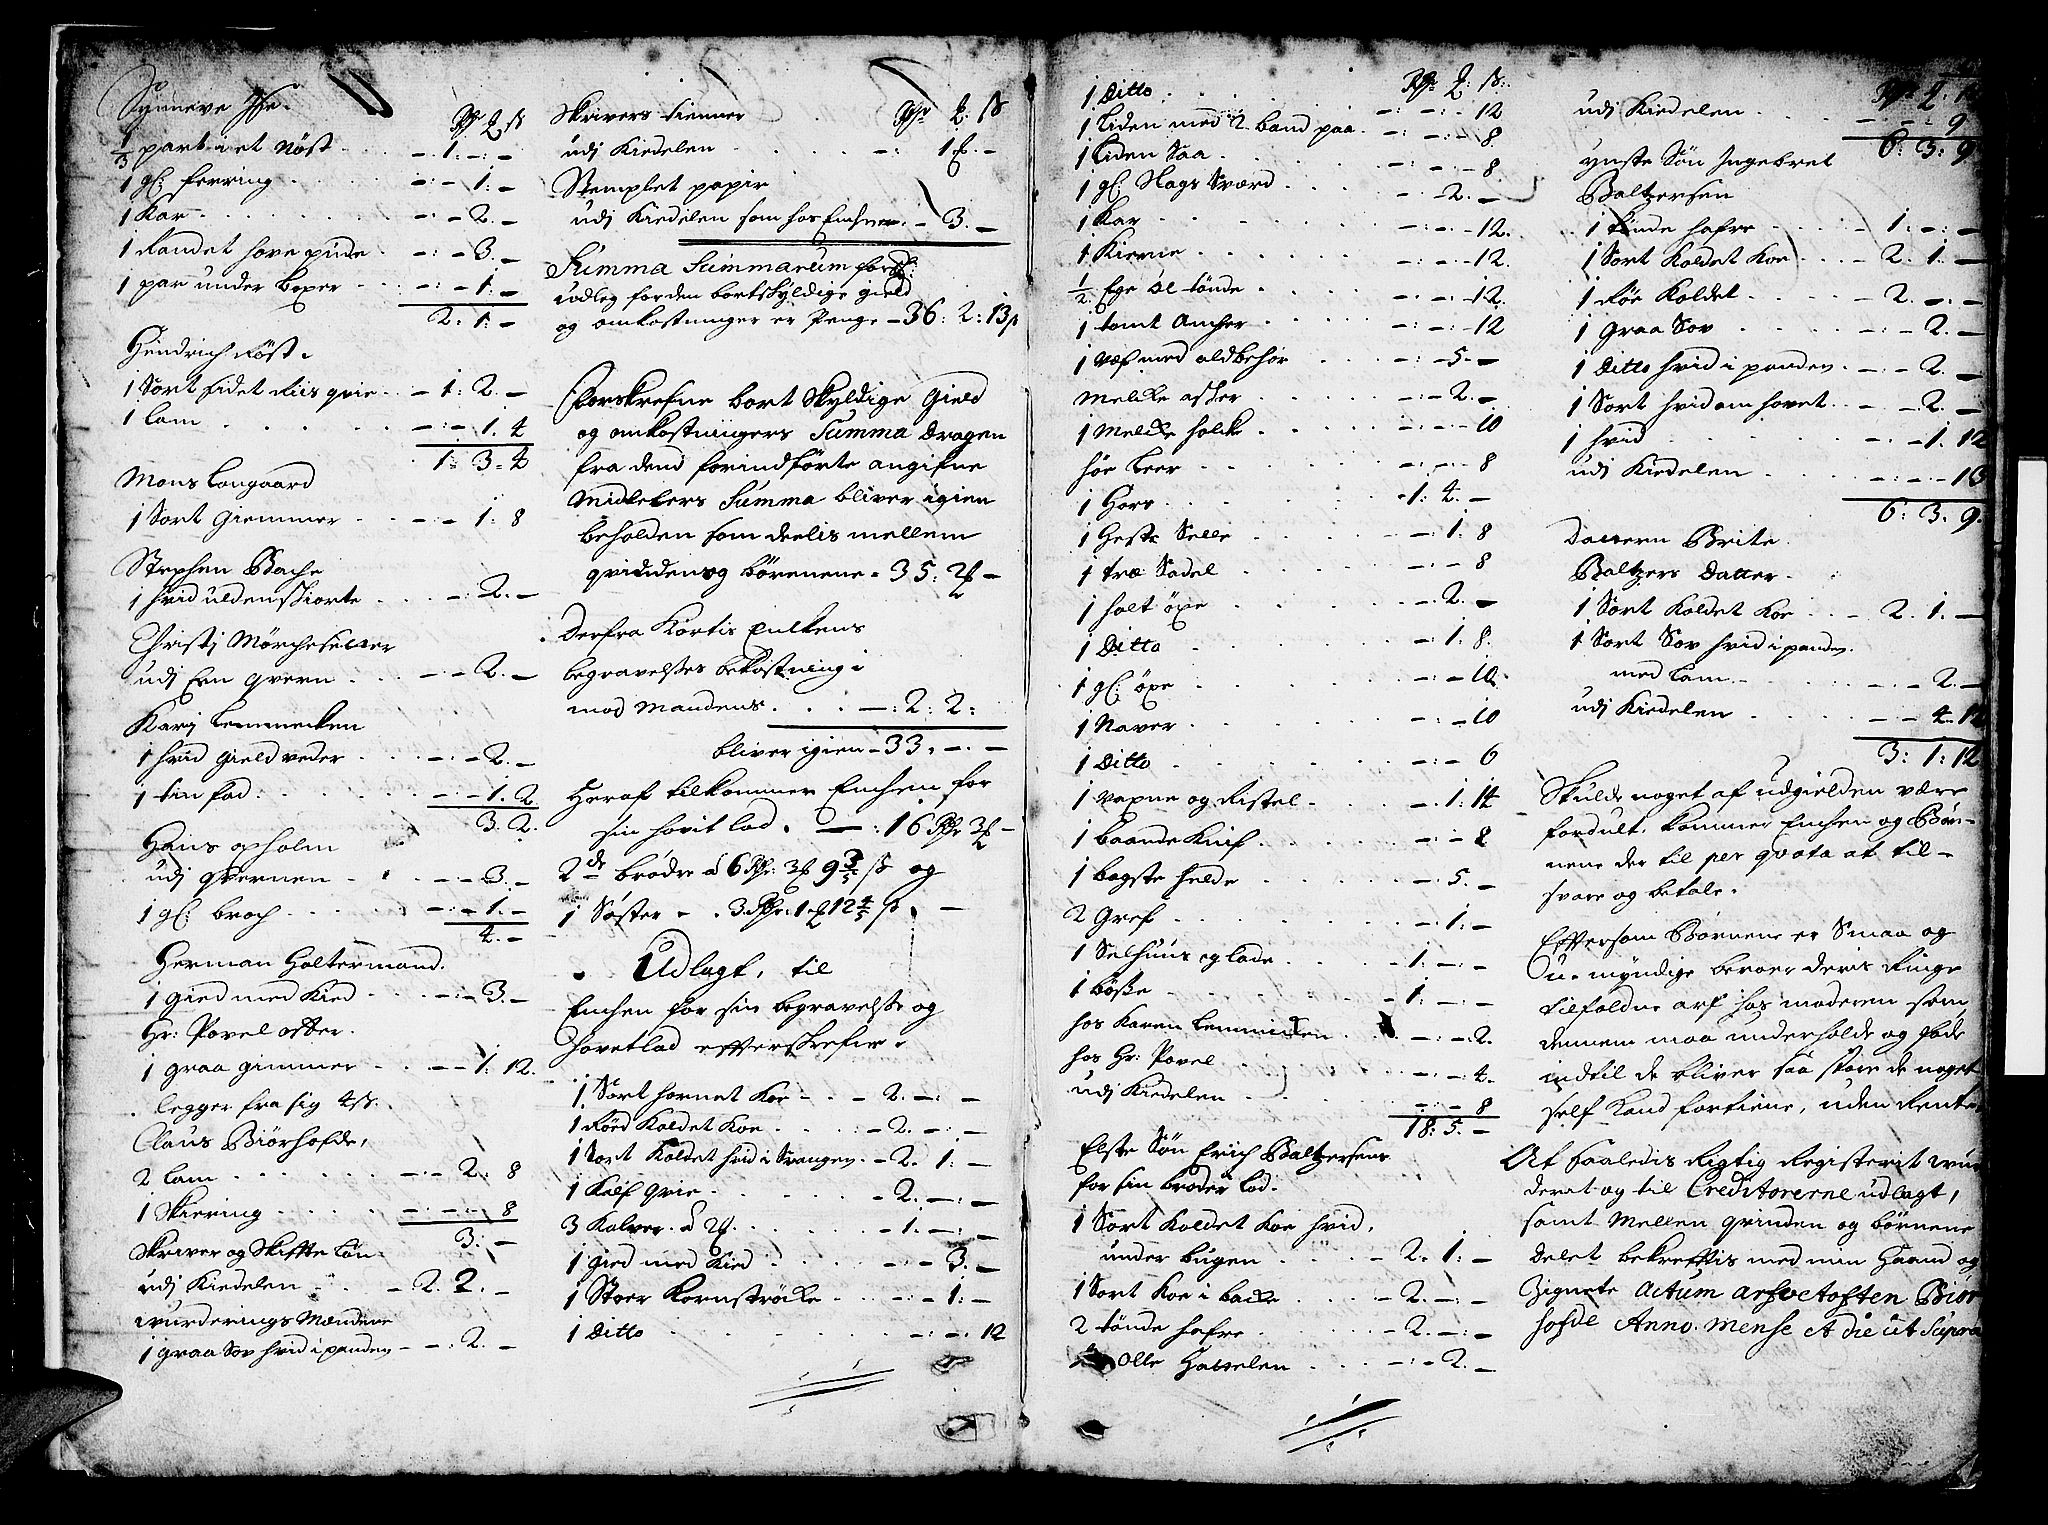 Synneve Ise.
Rdr ₰ ß
1/3 part i et Nøst - 1: - : -
1 gl: ferring - : - 1: -
1 Kar - : - 2. -
1 Randet hove pude - : - 3. -
1 par under boxer - : - 1: -
2: 1: -
Hendrich Røst.
1 Sort sidet Riis qvie - 1: 2. -
1 lam - : - 1. 4
1: 3: 4
Mons Langaard
1 Sort Giemmer - : - 1: 8
Stephen Bache
1 hvid ulden skiorte - : 2. -
Christj Mørcheseller
udj Een qvern - - 2. -
Karj Lemmecken
1 hvid gield veder - : - 2. -
1 tin fad - : - 1. 2
3. 2.
Hans opholm
udj qvernen - : - 3. -
1 gl: broch - : - 1. -
4. -
Herman Holtermand.
1 Gied med Kied - : - 3. -
Hr: Povel after.
1 graa gimmer - - 1: 12.
legger fra sig 4ß.
Claus Biørhofde,
2 lam - : - 2: 8
1 Skiering - : - : - 8
3: -
Skriver og Skifte løn
udj Kiedelen - 2. 2. -
wurderings Mændene
1 graa Sov hvid i panden - - : 2. -
Skrivers tienner
Rdr ₰: ß
udj Kiedelen - : 1 ₰. -
Stemplet papir
udj Kiedelen som hos Enchen - 3. -
Summa Summarum for
udleg for den bortskyldige gield
og omkostninger er Penge - 36: 2: 13ß
Forskrefne bort skyldige Gield
og omkostningers Summa dragen
fra dend forindførte angifne
Midelers Summa bliver igien
beholden som deelis mellem
qvinden og børenene - 35: 2 ₰ -
Derfra Kortis Enkens
begravelses bekostning i
mod Mandens. - : 2: 2:
bliver igien - 33. - . -
Heraf tilkommer Enchen for
sin hovit lod. - : 16 Rdr 3 ₰ -
2de brødre â 6 Rdr: 3 ₰ 9 3/5 ß og
1 Søster - . 3 Rdr: 1 ₰ 12 4/5 ß. -
Udlagt, til
Enchen for sin begravelse og
Hovetlod efferskrefin.
1 Sort hornet Koe - - 2. - : -
1 Røed Koldet Koe - : - 2. - : -
1 Sort Koldet hvid i Svangen - 2. 1: -
1 Kalf qvie - - 2. - : -
3 Kalver. â 2 ₰ - 1. - : -
1 Gied med Kied - - 3. -
1 Stoer Kornstrøcke - - - 1: -
1 Ditto - : - : 12
1 Ditto
Rdr ₰: ß:
- : - : - 12
1 liden med 2 band paa - : - : - 8
1 liden Saa - : - : - 8.
1 gl: Slags Sværd - : - 2. -
1 Kar - : - : - 12.
1 Kierne - : - : - 12.
1/2 Ege øl tønde - : - : - 12.
1 tomt Ancher - : - : - 12
1 væf med aldbehør - : - 5. -
Melcke asker - : - 2. -
1 Melcke holck - : - : - 10
høe leer - : - : - 8
1 Hors - 1: 4. -
1 Heste Selle - : 1: 8
1 træ Sadel - : - 8
1 holt øxe - : 2. -
1 Ditto - : 1. 8.
1 gl: øxe - : - 10.
1 Naver - : - 10
1 Ditto - : - 6
1 vapne og Ristel - . 1: 14
1 baande Knif - : - 8
1 bagste helde - : 5. -
2 Gref - : 1: -
1 Selhuus og lade - 1: - : -
1 bøsse - 1: - : -
hos Karen Lemmicken - : - 2.
hos Hr: Povel - : - 4.
udj Kiedelen - : - 8
18: 5. -
Elste Søn Erich Baltzersens
for sin broder lod.
1 Sort Koldet Koe hvid,
under bugen - 2. 1: -
1 Sort Koe i backe - 2. - : -
2 tønde hafre - 2. - : -
Olle Hatzelen - : - 2. -
Rdr ₰: ß
udj Kiedelen - - - 9
6: 3: 9
yngste Søn Ingebret
Baltzersen
1 tønde hafre - 1: - : -
1 Sort Koldet Koe - 2. 1: -
1 Røe Koldet - 2. - : -
1 graa Sov - : - 2. -
1 Ditto hvid i panden - - : - 2. -
1 Sort hvid om hovet - - - 2. -
1 hvid - : - 1. 12
udj Kiedelen - : - : - 13
6: 3: 9.
Dattern Brite
Baltzers Datter.
1 Sort Koldet Koe - 2. 1: -
1 Sort Sov hvid i panden
med lam - - : - 2. -
udj Kiedelen - - 4. 12
3: 1: 12
Skulde noget af udgielden være
fordult, kommer Enchen og Bør-
nene der til per qvota at til-
svare og betale.
Effersom Børnene er Smaa og
U-myndige beroer deris Ringe
tilfaldne arf hos moderen som
dennem maa underholde og føde
indtil de bliver saa store de noget
self kand fortiene, uden Rente.
At saaledis Rigtig Registerit wur
derat og til Creditorerne udlagt,
samt mellem qvinden og børnene
delet bekreftis med min Haand og
Zignete Actum arhvetosten Biør
hofde Anno. Mense & die ut Supra